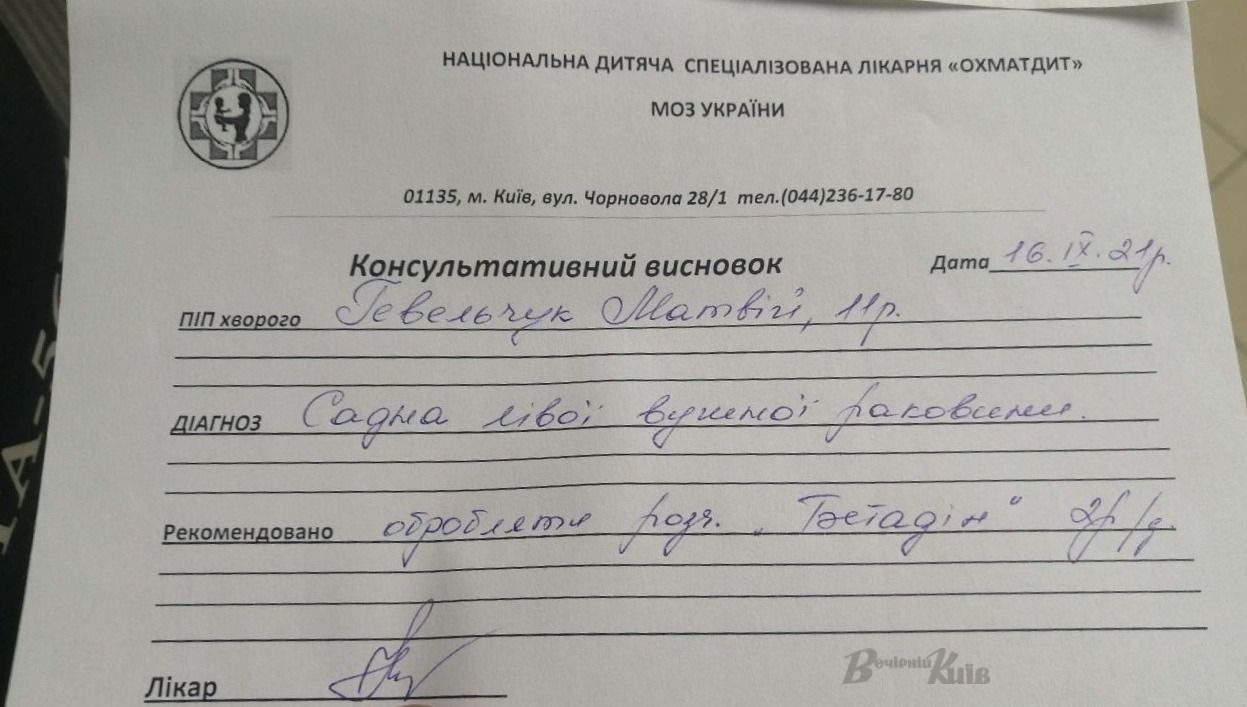 НАЦІОНАЛЬНА ДИТЯЧА СПЕЦІАЛІЗОВАНА ЛІКАРНЯ «ОХМАТДИТ»
МОЗ УКРАЇНИ
01135, м. Київ, вул. Чорновола 28/1 тел.(044)236-17-80
Консультативний висновок Дата 16.IX.21р.
ПІП хворого Гевельчук Матвій, 11р.
ДІАГНОЗ Садна лівої вушної раковини.
Рекомендовано обробляти розч. „Бетадін“ 2р/д.
Лікар
Вечірній Київ